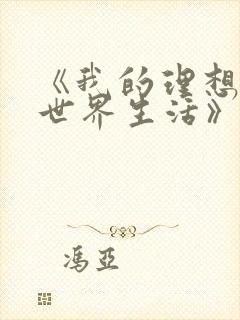 《我的理想
世界生活》
冯亚